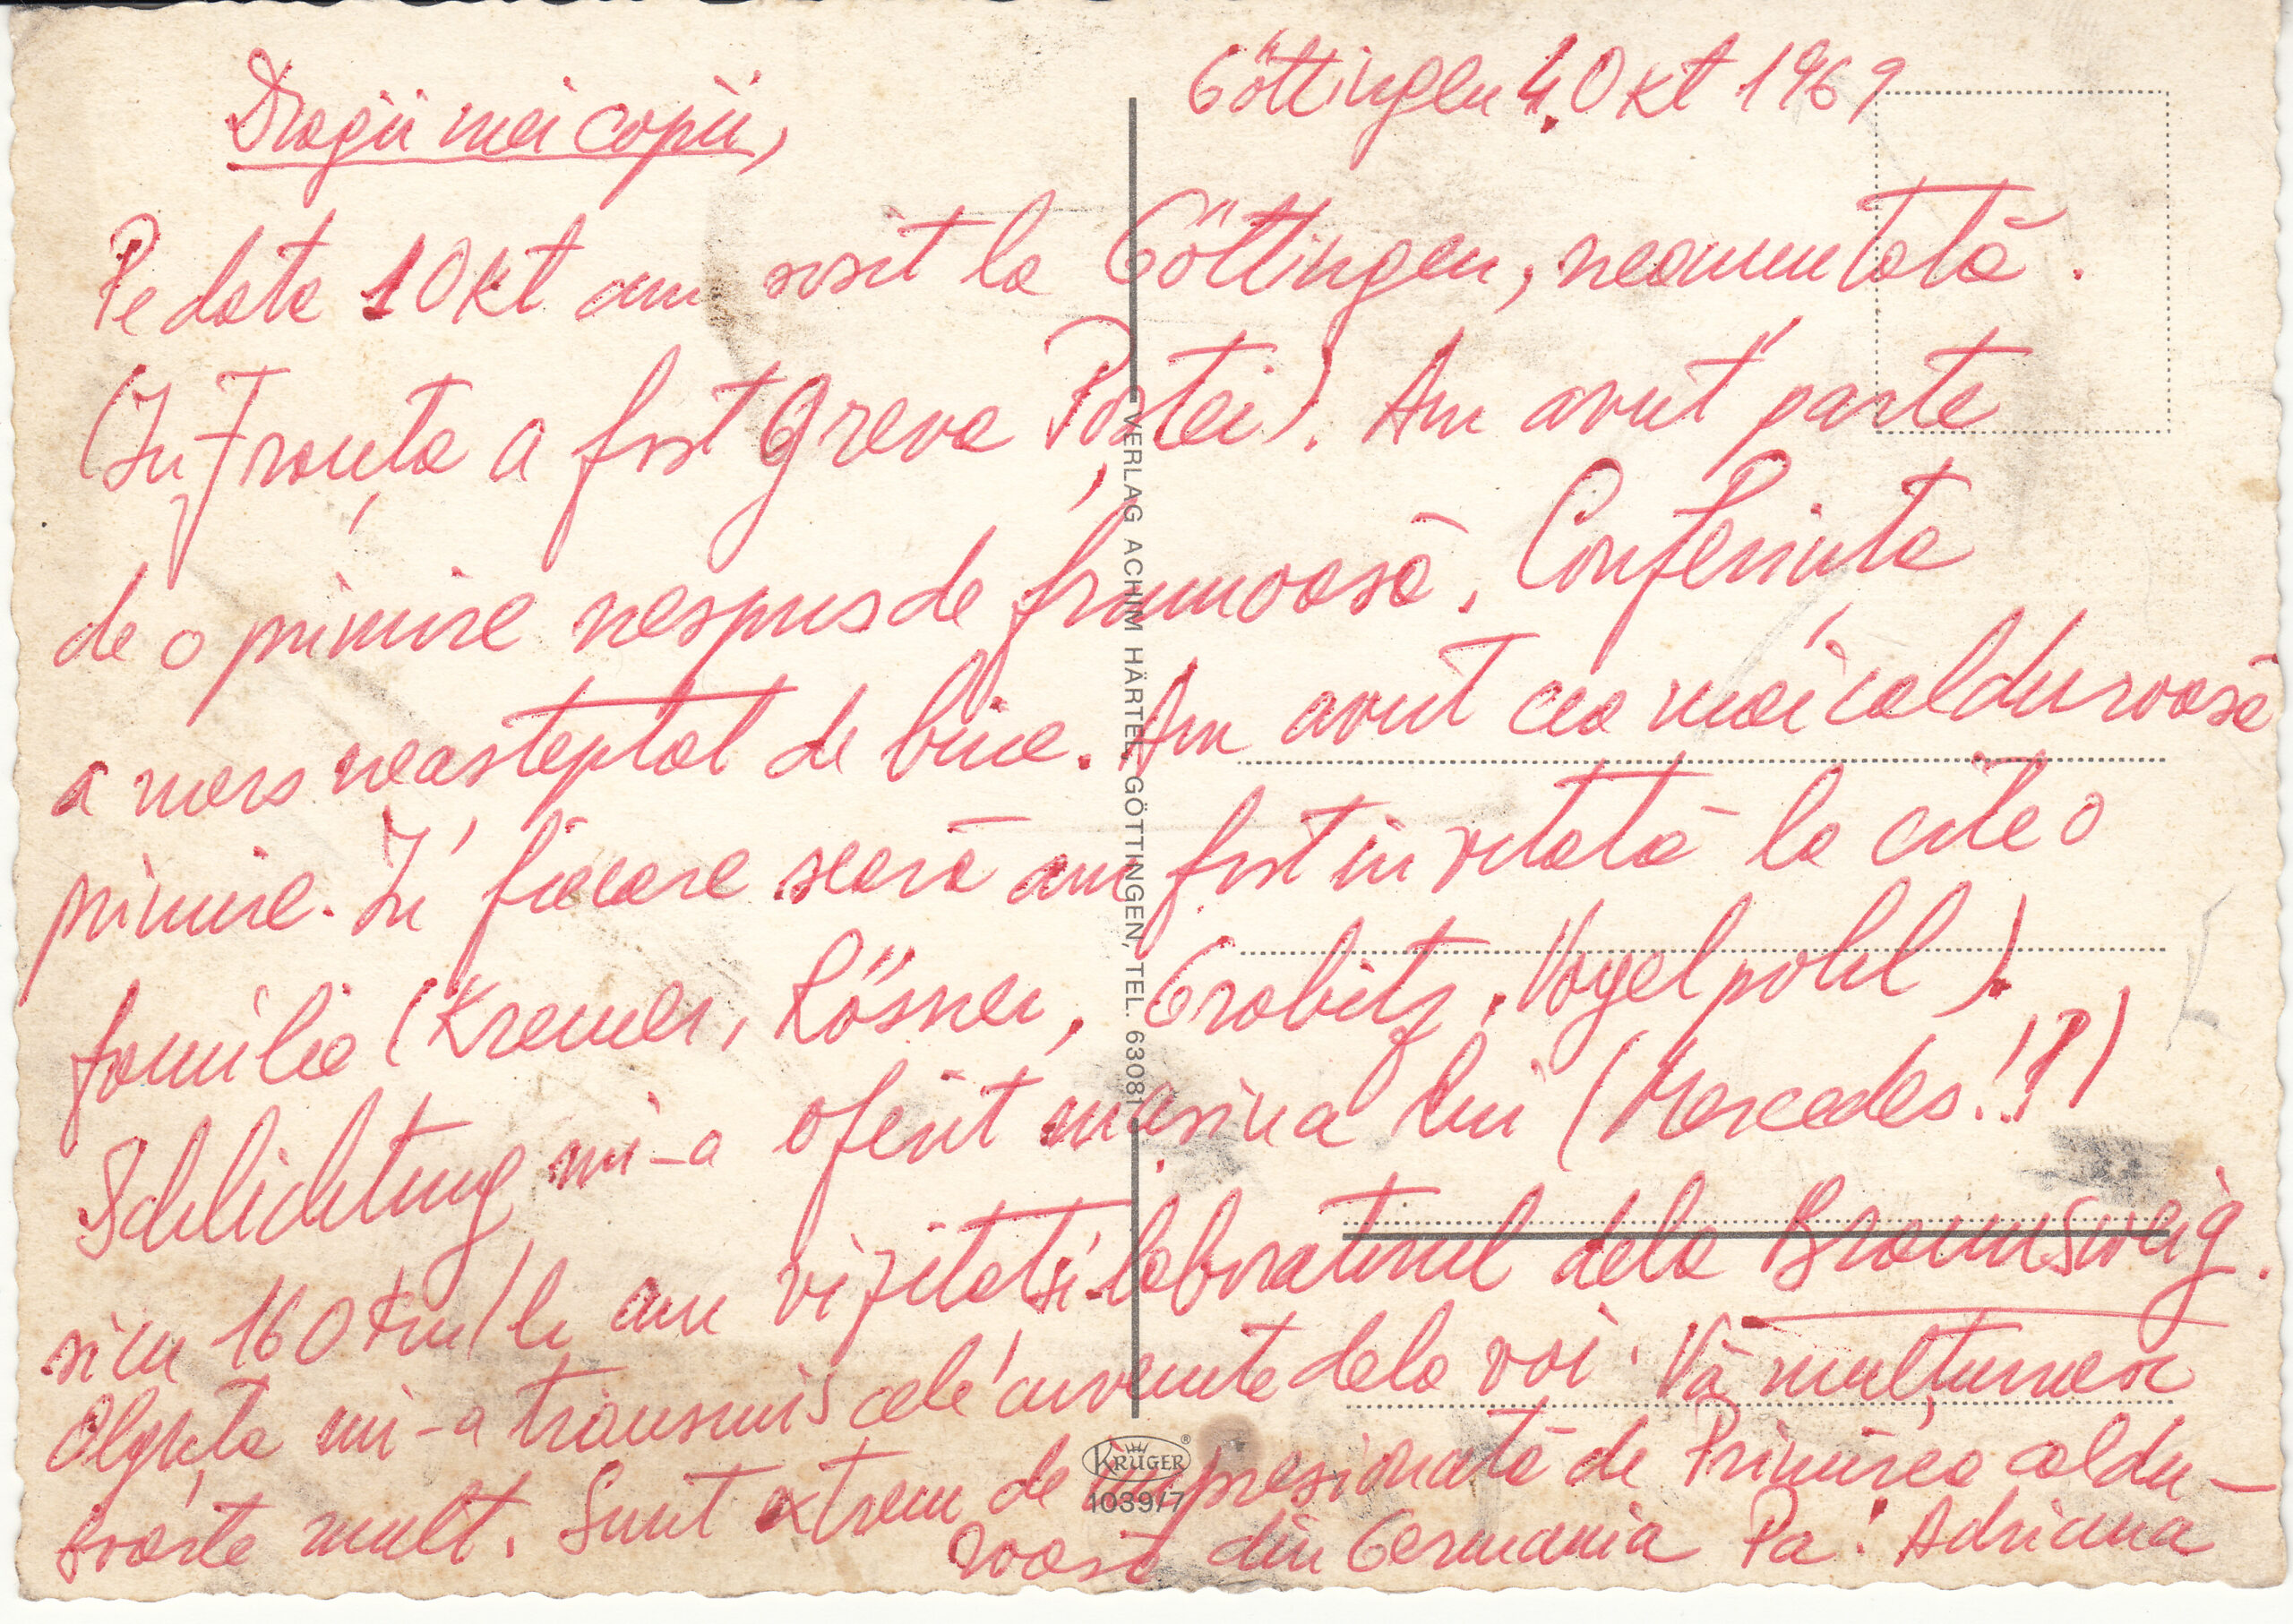 Göttingen 4. Okt 1969
Dragii mei copii,
Pe data 1 Okt am sosit la Göttingen, neanunțată.
(In Franța a fost Greva Poștei). Am avut parte
de o primire nespus de frumoasă. Conferința
a mers neașteptat de bine. Am avut cea mai călduroasă
primire. In fiecare seară am fost invitată la cite o
familie (Kremer, Rössner, Grabitz, Vogelpohl).
Schlichting mi-a oferit mașina lui (Mercedes!!?)
si cu 160 km/h am vizitat și laboratorul dela Braunsweig.
Olguța mi-a transmis cele cuvinte dela voi. Vă mulțumesc
foarte mult. Sunt extrem de impresionată de Primirea caldu-
roasă din Germania Pa! Adriana
VERLAG ACHIM HÄRTEL, GÖTTINGEN, TEL. 63081
KRÜGER®
1039/7